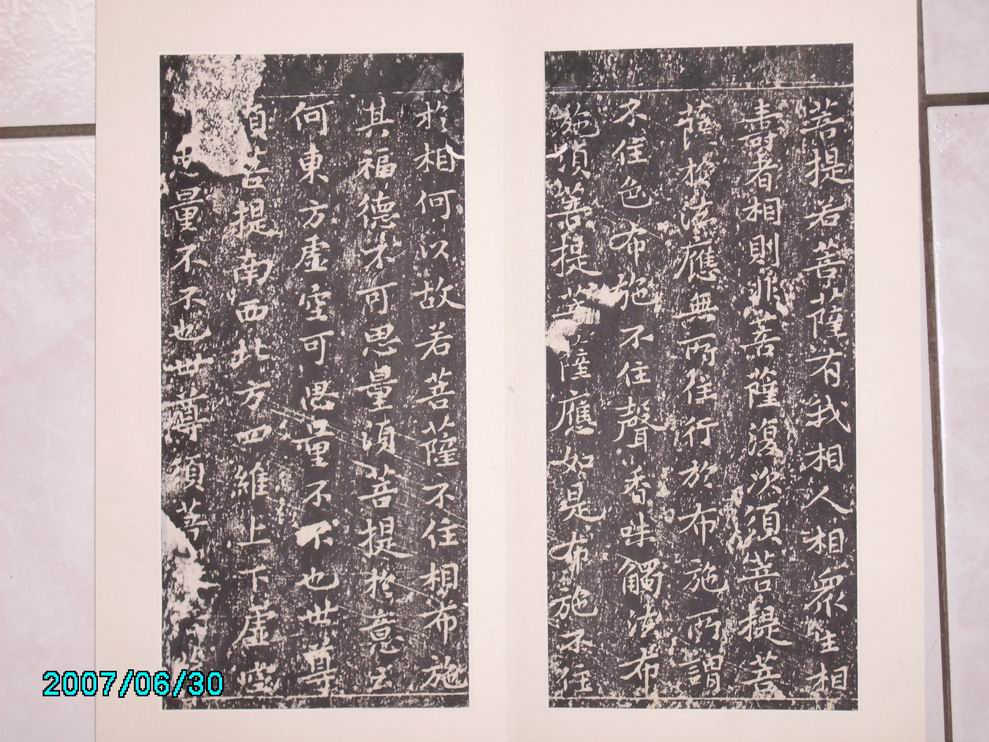 菩提若菩薩有我相人相眾生相
壽者相則非菩薩復次須菩提菩
薩於法應無所住行於布施所謂
不住色布施不住聲香味觸法布
施須菩提菩薩應如是布施不住
於相何以故若菩薩不住相布施
其福德不可思量須菩提於意云
何東方虛空可思量不不也世尊
須菩提南西北方四維上下虛空
思量不不也世尊須菩
2007/06/30